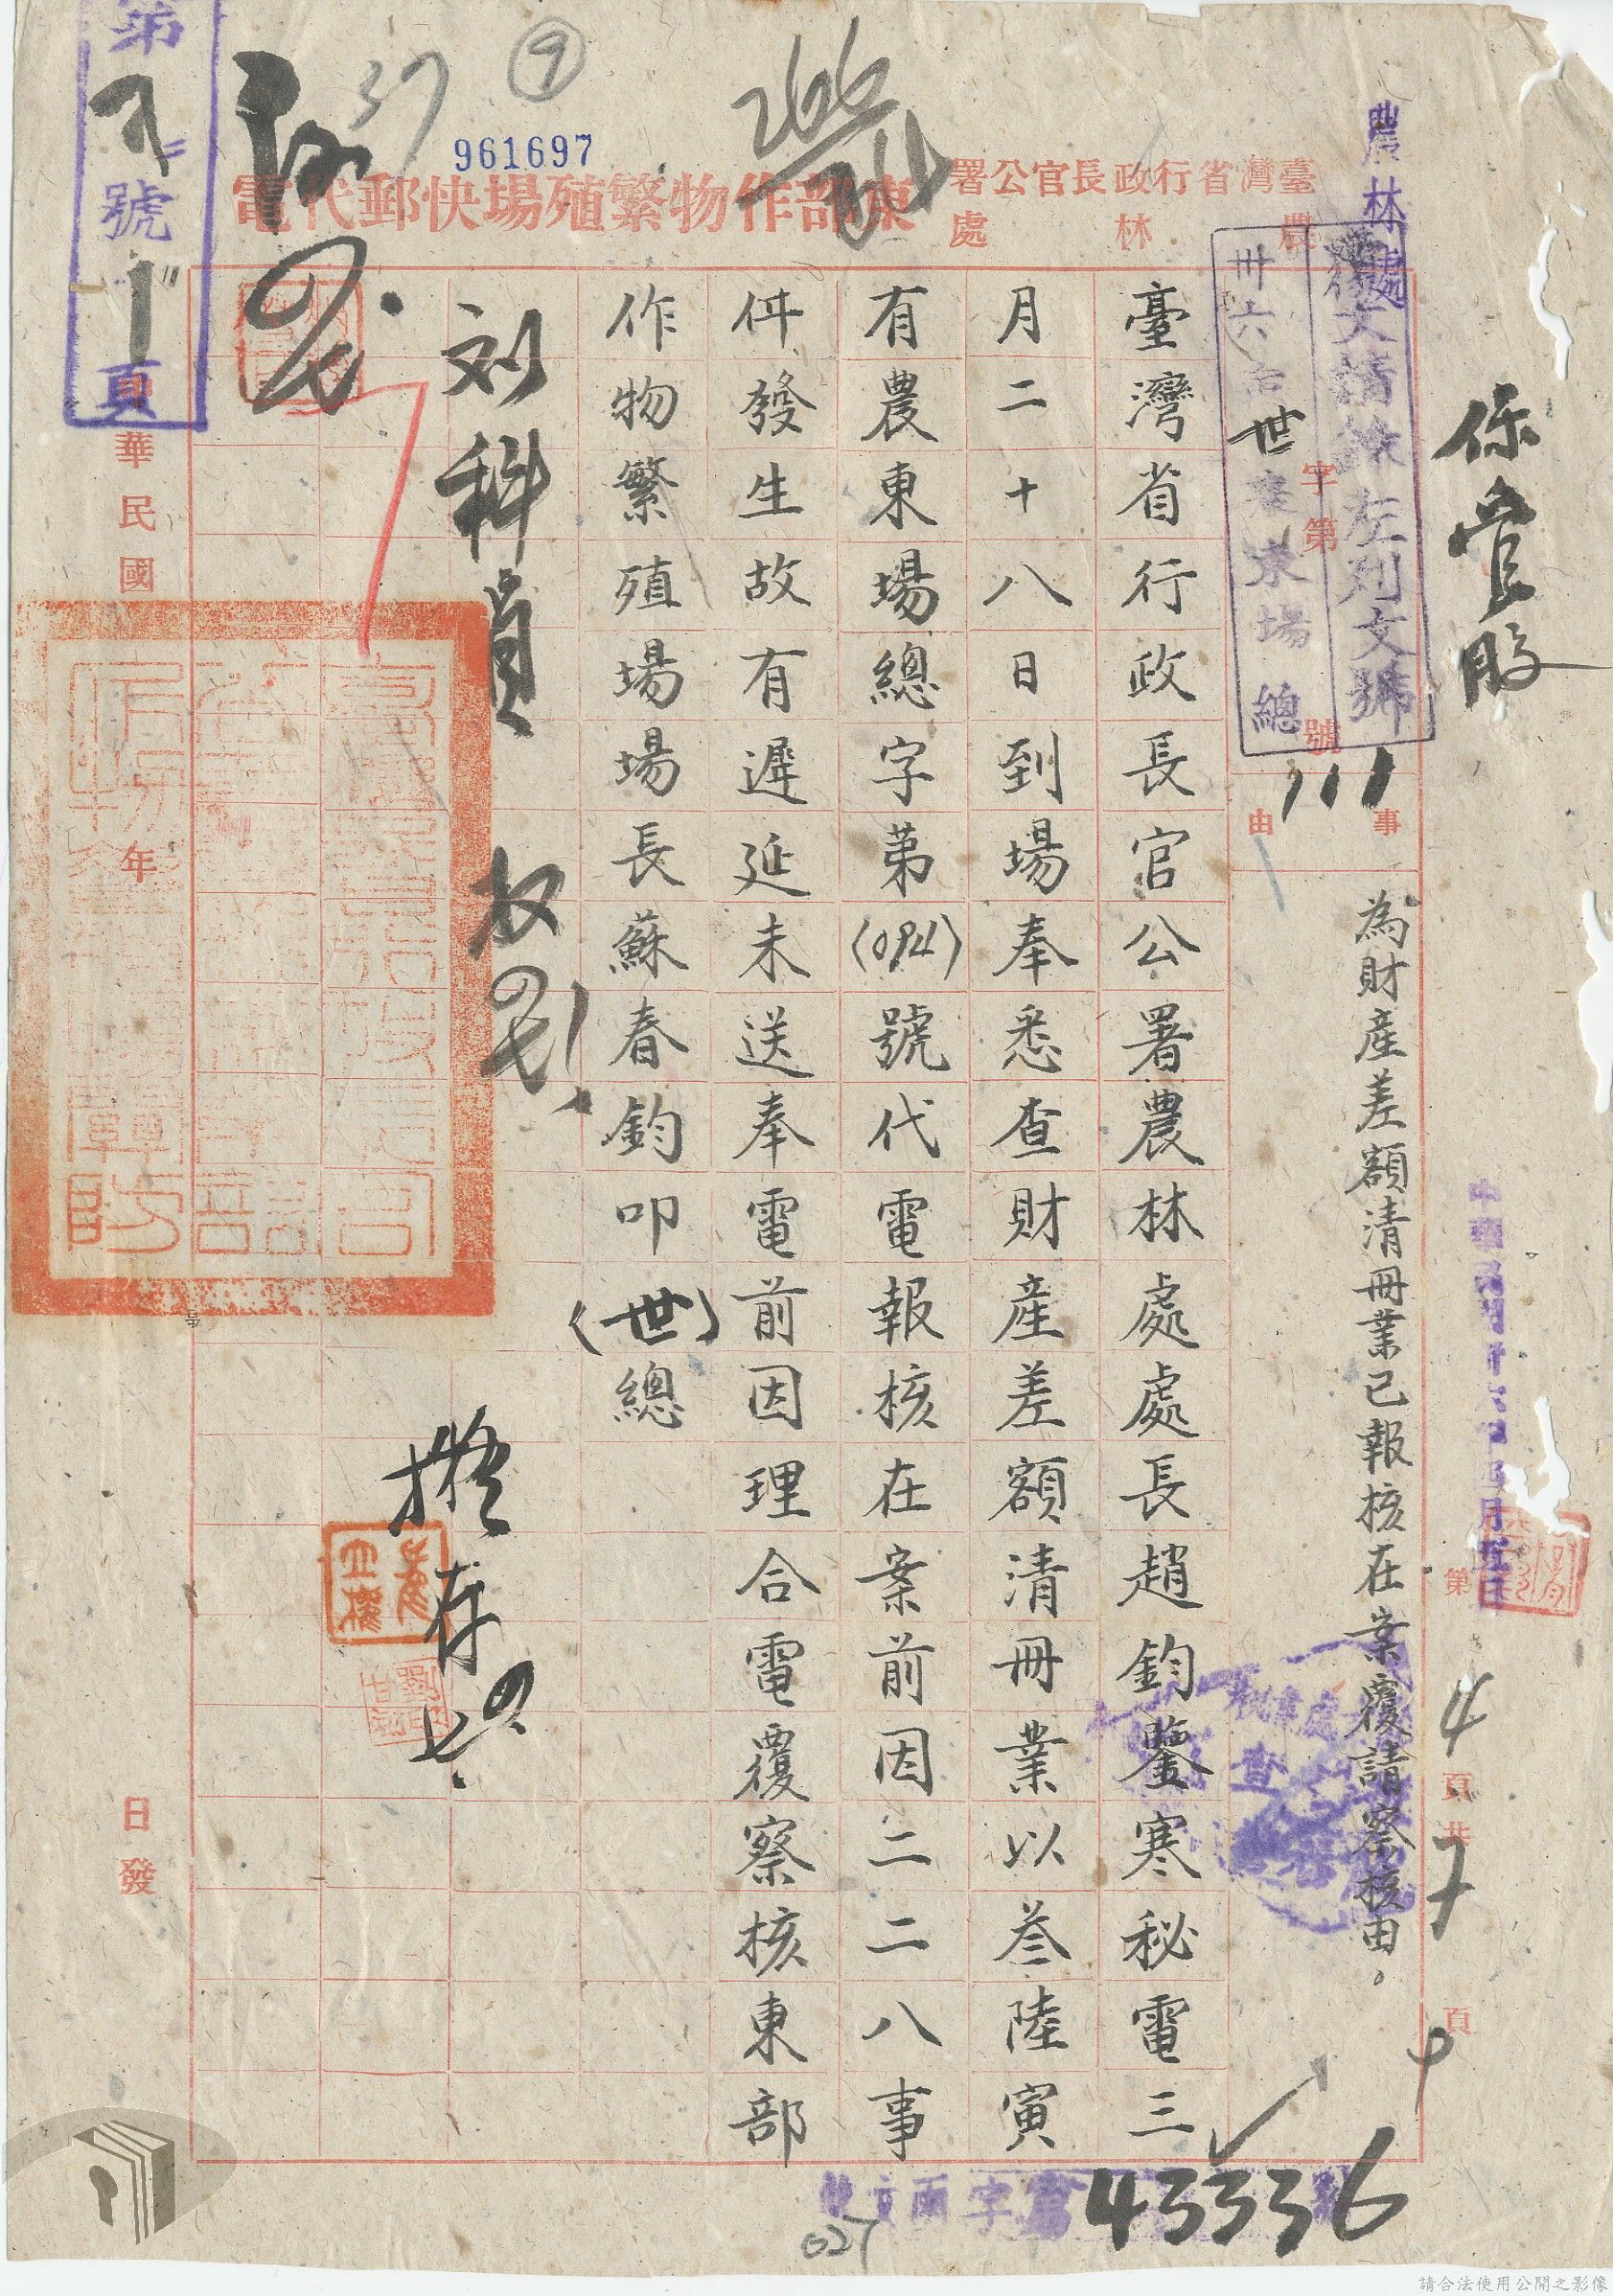 961697
37
⑨
臺灣省行政長官公署農林處
東部作物繁殖場快郵代電
農林處
復文請錄左列文號
卅六
世
農東場總
字第
號
111
保管股
事由
為財產差額清冊業已報核在案覆請察核由。
第4頁共7頁
臺灣省行政長官公署農林處處長趙鈞鑒寒秘電三
月二十八日到場奉悉查財產差額清冊業以叁陸寅
有農東場總字第(094)號代電報核在案前因二二八事
件發生故有遲延未送奉電前因理合電覆察核東部
作物繁殖場場長蘇春鈞叩(世)總
刘科員
擬存
中華民國
年
日發
第
號
頁
43336
027
請合法使用公開之影像